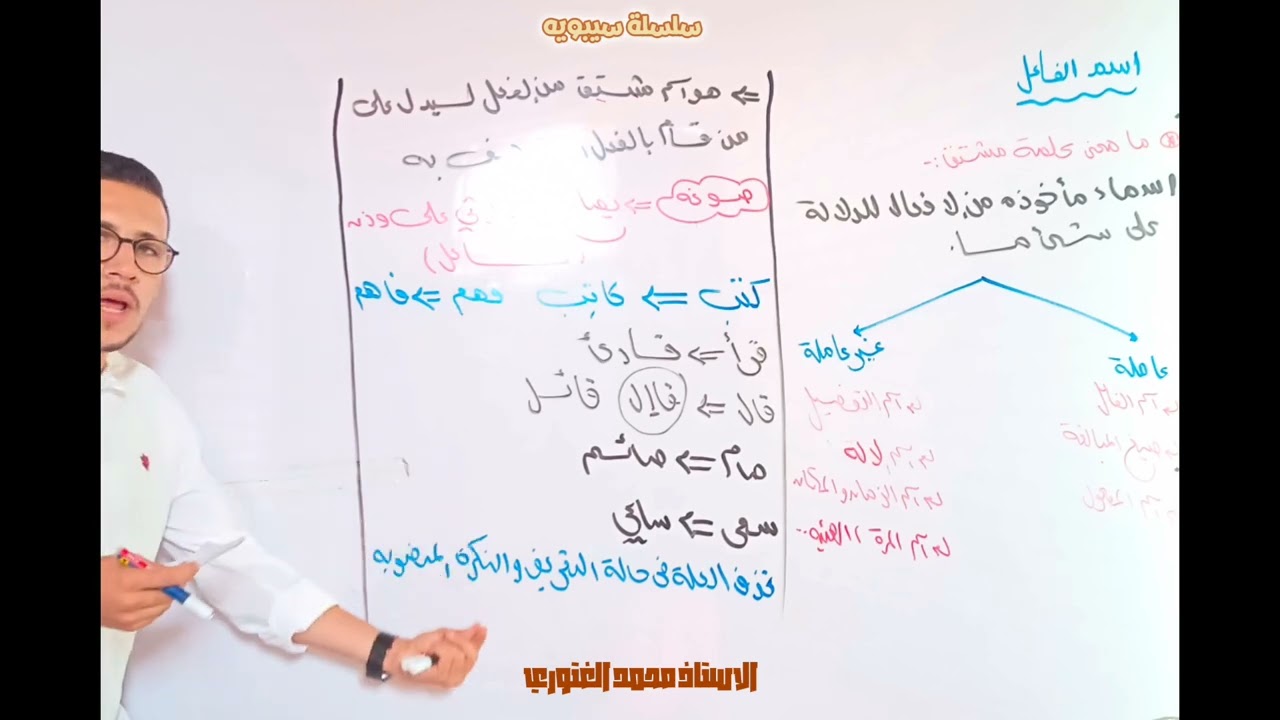 سلسلة سيبويه
اسم الفاعل
ما معنى كلمة مشتق:-
اسماء مأخوذه من الافعال للدلالة
على شيء ما.
عاملة
غير عاملة
اسم الفاعل
صيغ المبالغة
اسم المفعول
اسم التفضيل
اسم الالة
اسم الزمان والمكان
اسم المرة // الهيئة..
<= هو اسم مشتق من الفعل ليدل على
من قام بالفعل به
صوغه <= على وزن
كتب <= كاتب فهم <= فاهم
قرأ <= قارئ
قال <= قاال قائل
صام <= صائم
سعى <= ساعي
تحذف العلة في حالة التعريف والنكرة المنصوبه
الاستاذ محمد الغنوري